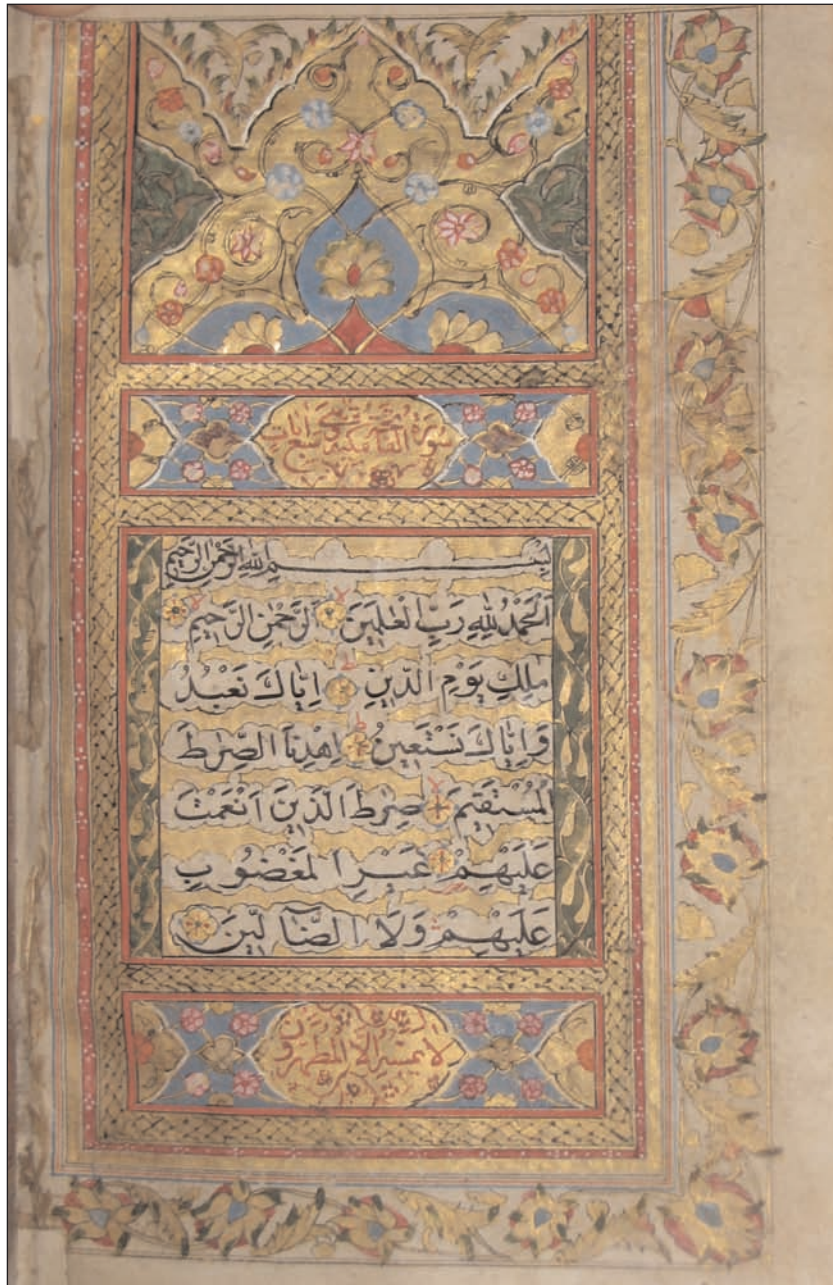 سورة فاتحة
الكتاب مكية سبع آيات
بِسْمِ اللهِ الرَّحْمٰنِ الرَّحِيمِ
اَلْحَمْدُ لِلّٰهِ رَبِّ الْعٰلَمِينَ اَلرَّحْمٰنِ الرَّحِيمِ
مٰلِكِ يَوْمِ الدِّينِ اِيَّاكَ نَعْبُدُ
وَاِيَّاكَ نَسْتَعِينُ اِهْدِنَا الصِّرٰطَ
الْمُسْتَقِيمَ صِرٰطَ الَّذِينَ اَنْعَمْتَ
عَلَيْهِمْ غَيْرِ الْمَغْضُوبِ
عَلَيْهِمْ وَلَا الضَّآلِّينَ
لا يمسه الا المطهرون